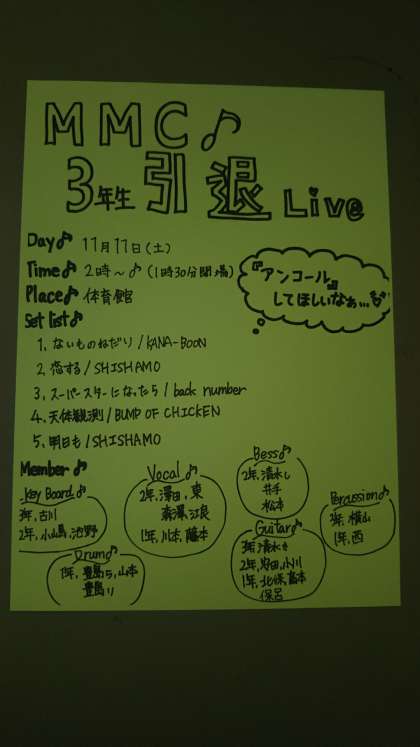 MMC♪
3年生 引退 Live
Day♪ 11月11日(土)
Time♪ 2時~♪(1時30分開場)
Place♪ 体育館
『アンコール』
してほしいなぁ…
Set list♪
1. ないものねだり/KANA-BOON
2. 恋する/SHISHAMO
3. スーパースターになったら/back number
4. 天体観測/BUMP OF CHICKEN
5. 明日も/SHISHAMO
Member♪
Key Board♪
3年, 古川
2年, 小嶋, 池野
Vocal♪
2年, 澤田, 東
森澤, 江良
1年, 川本, 藤本
Bess♪
2年, 清水し
井手
松本
Percussion♪
3年, 横山
1年, 西
Drum♪
1年, 豊島ち, 山本
豊島り
Guitar♪
3年, 清水き
2年, 小川
1年, 北條, 高本
保呂